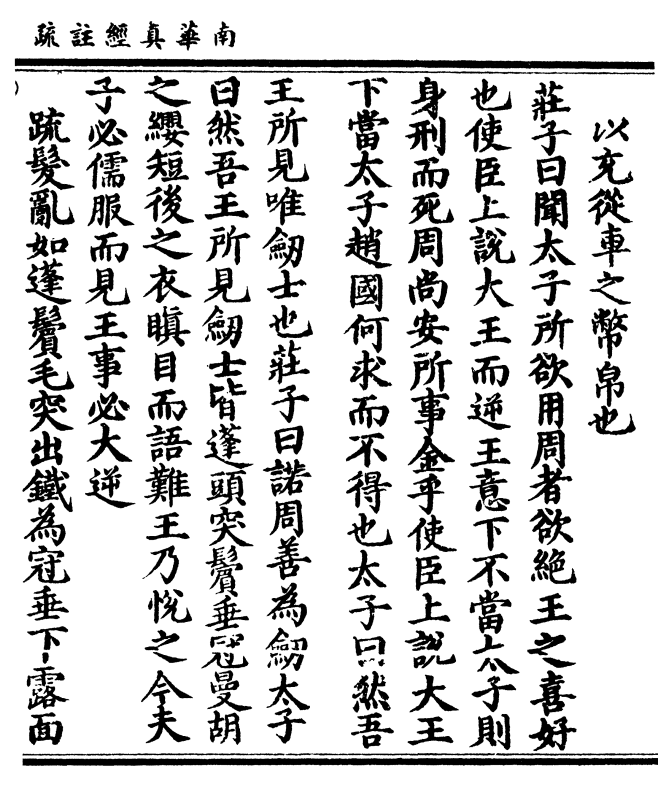 南華真經註疏
以充從車之幣帛也
莊子曰聞太子所欲用周者欲絶王之喜好
也使臣上說大王而逆王意下不當太子則
身刑而死周尚安所事金乎使臣上說大王
下當太子趙國何求而不得也太子曰然吾
王所見唯劒士也莊子曰諾周善為劒太子
曰然吾王所見劒士皆蓬頭突鬢垂冠曼胡
之纓短後之衣瞋目而語難王乃恱之今夫
子必儒服而見王事必大逆
疏髮亂如蓬鬢毛突出鐵為冠垂下露面